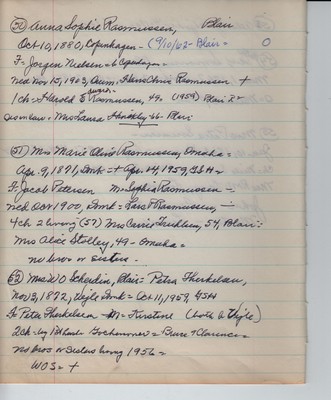 (50) Anna Sophie Rasmussen, Blair
Oct 10, 1880, Copenhagen - (9/10/62 - Blair = 0
F- Jorgen Nielsen = b Copenhagen -
Md Nov 15, 1903, Hans Chris Rasmussen +
1 ch = Harold E Rasmussen, 49 - (1959) Blair
Mrs Laura Hinkley - 66 - Blair
(51) Mrs Marie Rasmussen, Omaha =
Apr. 9, 1871, Dmk = + Apr. 24, 1959, GSH =
F. Jacob Petersen M = Sophia Rasmussen -
Md Oct 1900, Dmk = Lars P Rasmussen, -
4 ch 2 living (59) Mrs Carrie 54, Blair =
Mrs Alice Stolley, 49 - Omaha =
no bros or sisters -
(52) Mrs W O Scherdin, Blair = Petra Therkelsen,
Nov 13, 1872, Vejle Dmk = Oct 11, 1959, GSH
F Peter Therkelsen - M = Kirstine (both b Vejle)
2 ch - by 1st husb - Bruce & Clarence =
no bros or sisters living 1956 =
WOS = +